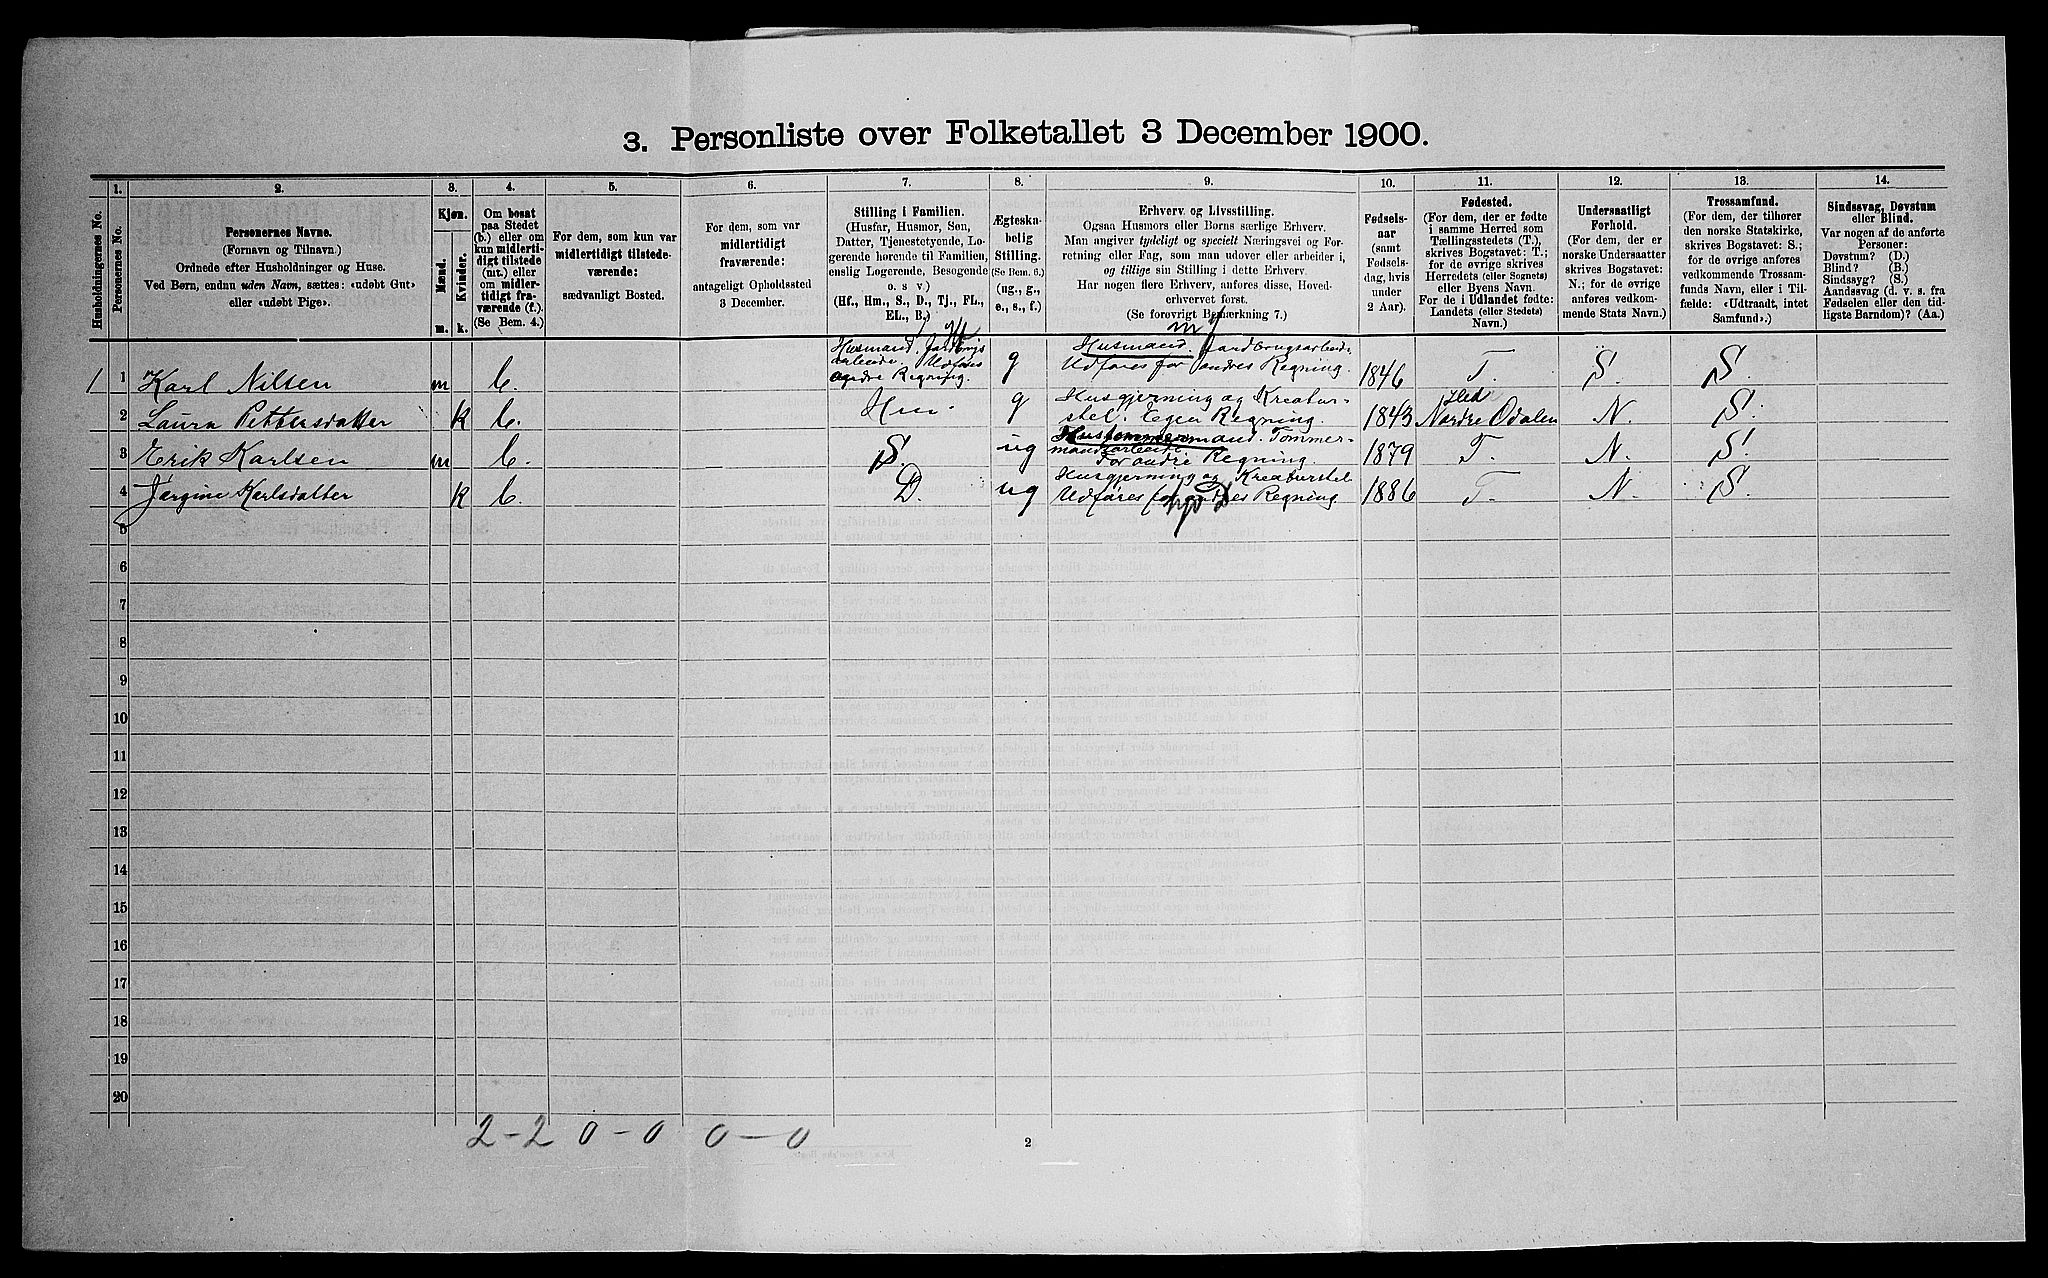 3. Personliste over Folketallet 3 December 1900.
Husholdningernes No.
1. Personernes No.
2. Personernes Navne.
(Fornavn og Tilnavn.)
Ordnede efter Husholdninger og Huse.
Ved Børn, endnu uden Navn, sættes: «udøbt Gut»
eller «udøbt Pige».
3. Kjøn.
Mænd. Kvinder.
m. k.
4. Om bosat
paa Stedet
(b.) eller om
kun midlerti-
digt tilstede
(mt.) eller
om midler-
tidigt fra-
værende (f.).
(Se Bem. 4.)
5. For dem, som kun var
midlertidigt tilstede-
værende:
sædvanligt Bosted.
6. For dem, som var
midlertidigt
fraværende:
antageligt Opholdssted
3 December.
7. Stilling i Familien.
(Husfar, Husmor, Søn,
Datter, Tjenestetyende, Lo-
gerende hørende til Familien,
enslig Logerende, Besøgende
o. s. v.)
(Hf., Hm., S., D., Tj., FL.,
EL., B.)
8. Ægteska-
belig
Stilling.
(Se Bem. 6.)
(ug., g.,
e., s., f.)
9. Erhverv og Livsstilling.
Ogsaa Husmors eller Børns særlige Erhverv.
Man angiver tydeligt og specielt Næringsvei og For-
retning eller Fag, som man udover eller arbeider i,
og tillige sin Stilling i dette Erhverv.
Har nogen flere Erhverv, anføres disse, Hoved-
erhvervet først.
(Se forøvrigt Bemerkning 7.)
10. Fødsels-
aar
(samt
Fødsels-
dag, hvis
under
2 Aar).
11. Fødested.
(For dem, der er fødte
i samme Herred som
Tællingsstedets (T.),
skrives Bogstavet: T.;
for de øvrige skrives
Herredets (eller Sognets)
eller Byens Navn.
For de i Udlandet fødte:
Landets (eller Stedets)
Navn.)
12. Undersaatligt
Forhold.
(For dem, der er
norske Undersaatter
skrives Bogstavet:
N.; for de øvrige
anføres vedkom-
mende Stats Navn.)
13. Trossamfund.
(For dem, der tilhører
den norske Statskirke,
skrives Bogstavet: S.;
for de øvrige anføres
vedkommende Trossam-
funds Navn, eller i Til-
fælde: «Udtraadt, intet
Samfund».)
14. Sindssvag, Døvstum
eller Blind.
Var nogen af de anførte
Personer:
Døvstum? (D.)
Blind? (B.)
Sindssyg? (S.)
Aandssvag (d. v. s. fra
Fødselen eller den tid-
ligste Barndom)? (Aa.)
1 1 Karl Nilsen m b. Husmand. Jordbrugs
arbeide. Udføres
andre Regning. g Husmand. Jordbrugsarbeide
Udføres for andres Regning. 1846 T. S. S.
2 Laura Pettersdatter k b. Hm. g Husgjerning og Kreatur-
stel. Egen Regning. 1843 Hed
Nordre Odalen N. S.
3 Erik Karlsen m b. S. ug Tømmer-
mandsarbeide
For andre Regning. 1879 T. N. S.
4 Jørgine Karlsdatter k b. D. ug Husgjerning og Kreaturstel
Udføres for andres Regning. 1886 T. N. S.
5
6
7
8
9
10
11
12
13
14
15
16
17
18
19
20
2-2 0-0 0-0
2